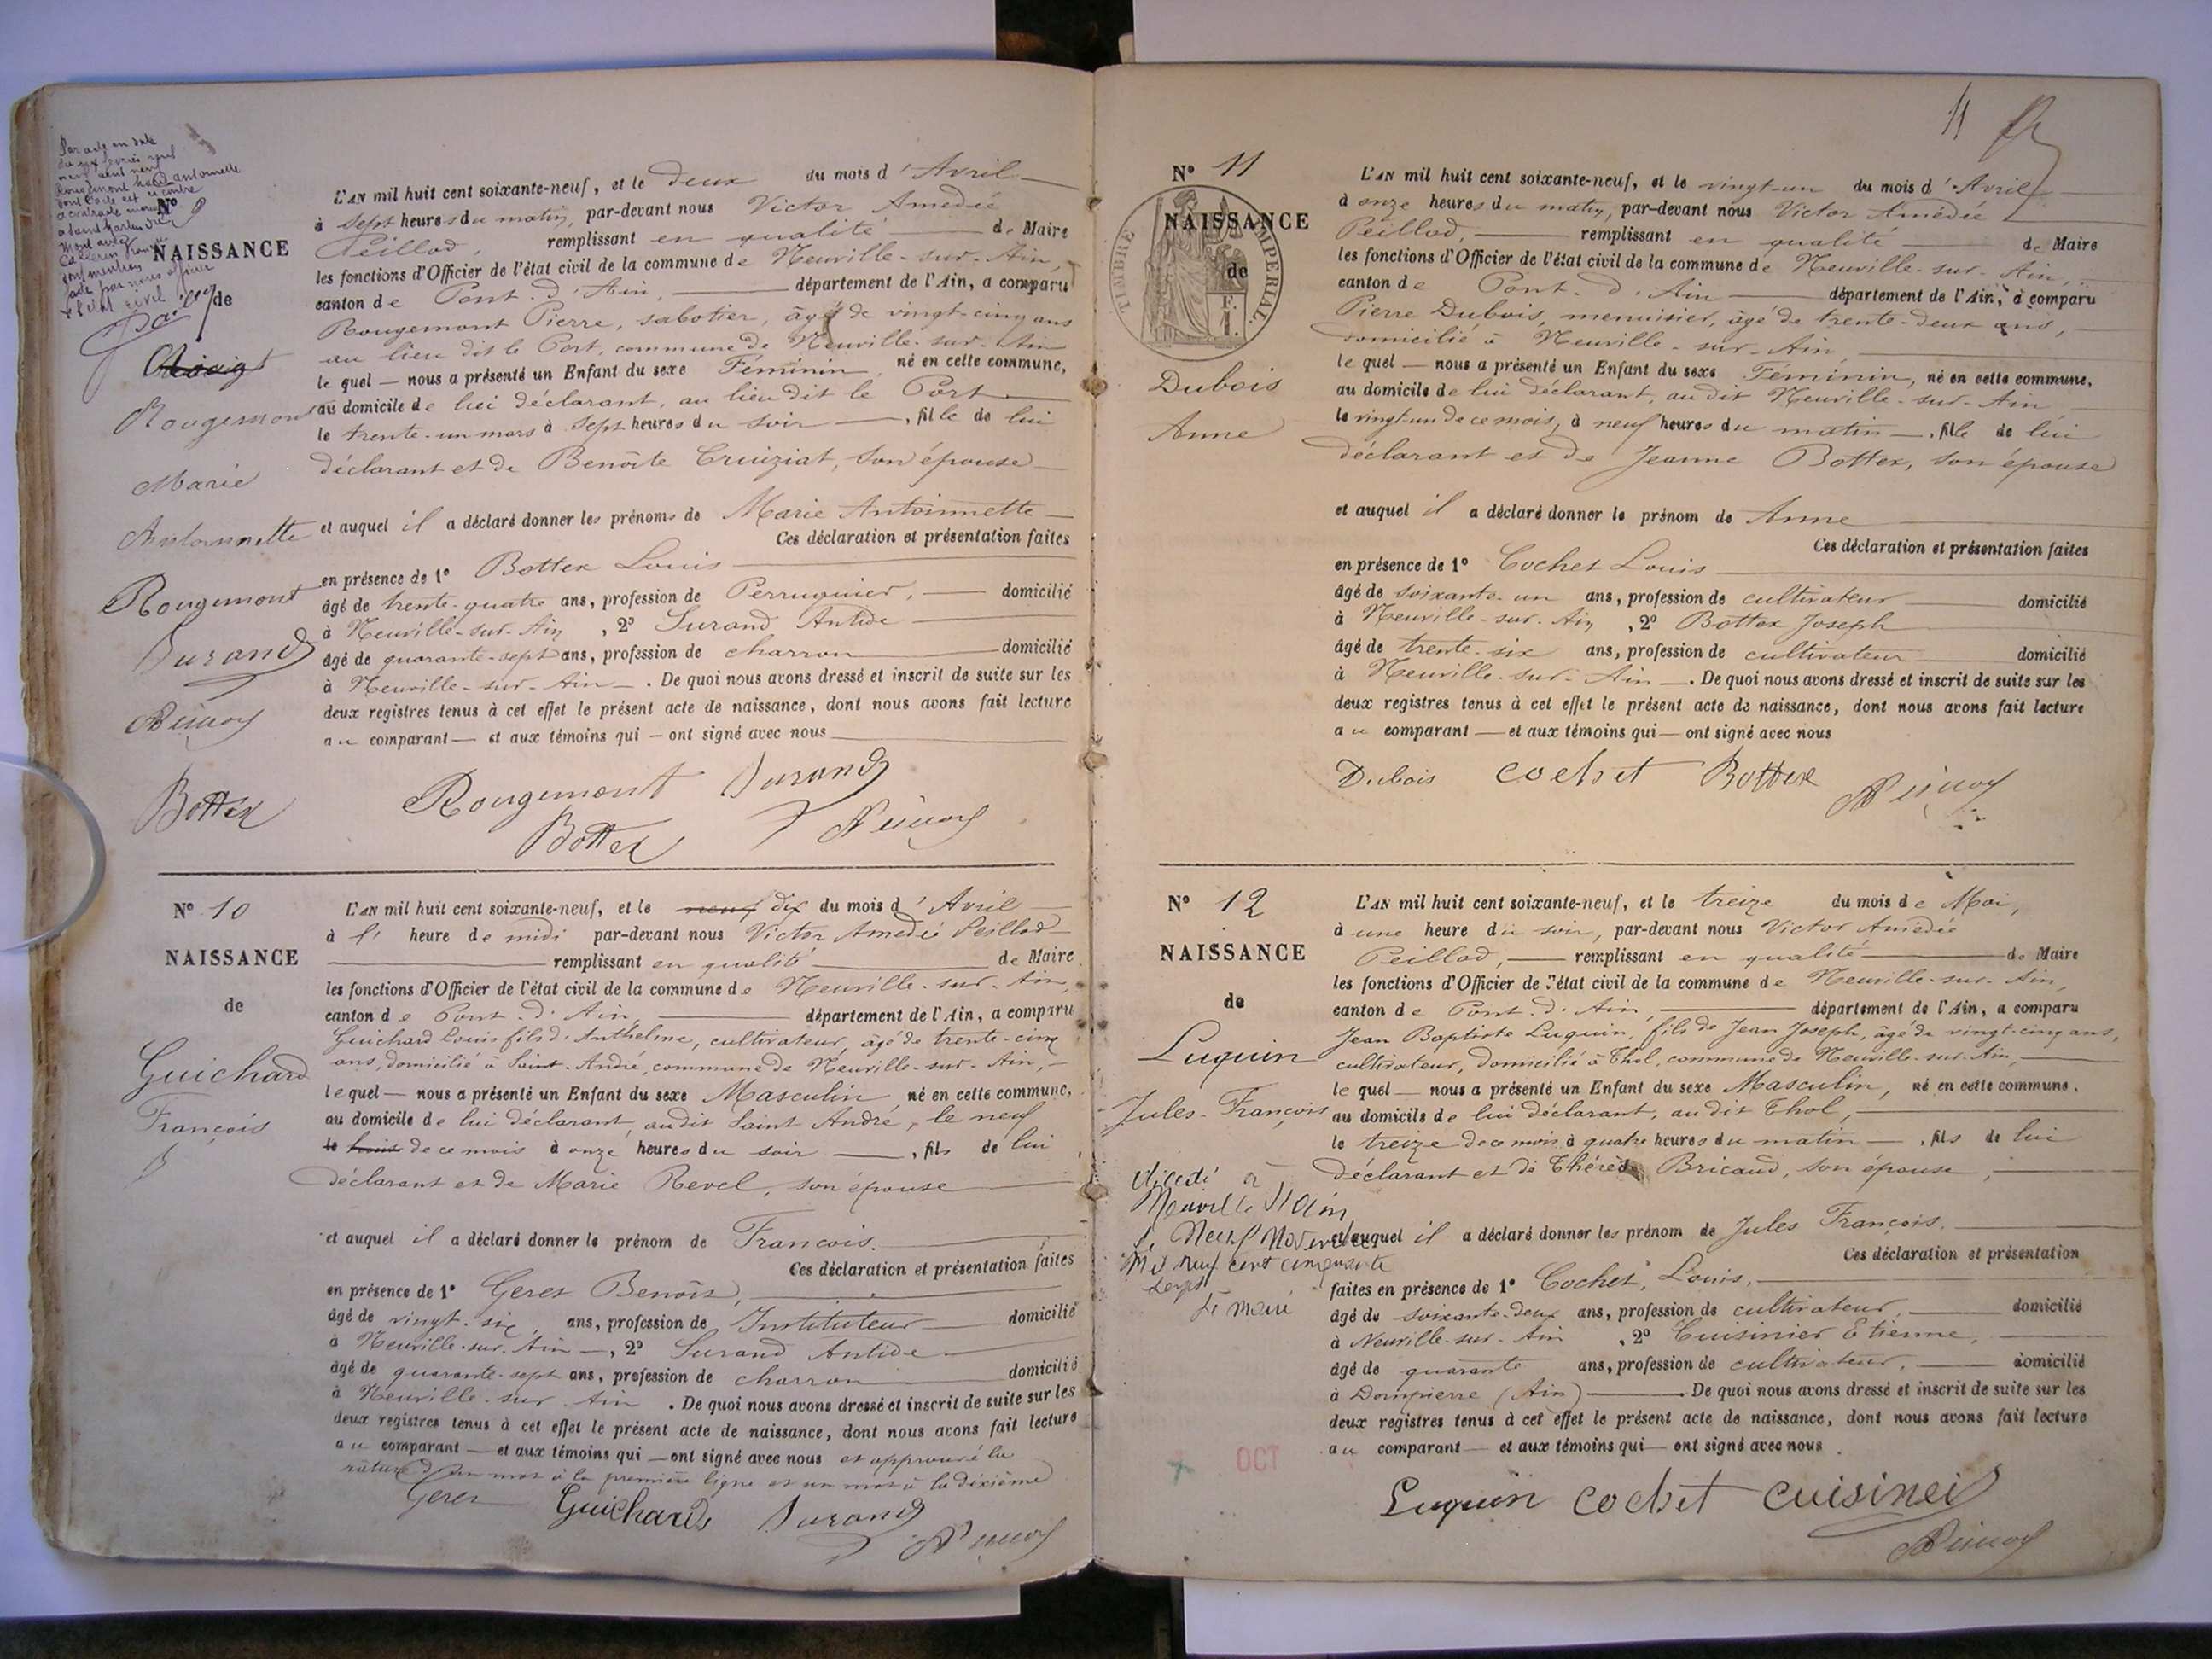 Par acte en date
neuf cent neuf
Rougemont Marie Antoinnette
ci contre
dont l'acte est
a contracté mariage
Mont avec
Mention
faite par nous officier
de l'état civil
N° 9
NAISSANCE
de
Rougemont
Marie
Antoinnette
Rougemont
Durand
Bottex
L'AN mil huit cent soixante-neuf, et le deux du mois d'Avril
à sept heures du matin, par-devant nous Victor Amédée
Peillod, remplissant en qualité de Maire
les fonctions d'Officier de l'état civil de la commune de Neuville-sur-Ain,
canton de Pont-d'Ain, département de l'Ain, a comparu
Rougemont Pierre, sabotier, âgé de vingt-cinq ans
au lieu dit le Port, commune de Neuville-sur-Ain
le quel — nous a présenté un Enfant du sexe Féminin, né en cette commune,
au domicile de lui déclarant, au lieu dit le Port
le trente-un mars à sept heures du soir —, fille de lui
déclarant et de Benoîte Cruiziat, son épouse
et auquel il a déclaré donner les prénoms de Marie Antoinnette
Ces déclaration et présentation faites
en présence de 1° Bottex Louis
âgé de trente-quatre ans, profession de Perruquier, domicilié
à Neuville-sur-Ain, 2° Durand Antide
âgé de quarante-sept ans, profession de charron domicilié
à Neuville-sur-Ain —. De quoi nous avons dressé et inscrit de suite sur les
deux registres tenus à cet effet le présent acte de naissance, dont nous avons fait lecture
au comparant — et aux témoins qui — ont signé avec nous
Rougemont Durand
Bottex
N° 10
NAISSANCE
de
Guichard
François
L'AN mil huit cent soixante-neuf, et le neuf dix du mois d'Avril
à l' heure de midi par-devant nous Victor Amédée Peillod
remplissant en qualité de Maire
les fonctions d'Officier de l'état civil de la commune de Neuville-sur-Ain,
canton de Pont-d'Ain, département de l'Ain, a comparu
Guichard Louis fils d'Anthelme, cultivateur, âgé de trente-cinq
ans, domicilié à Saint-André, commune de Neuville-sur-Ain,
le quel — nous a présenté un Enfant du sexe Masculin, né en cette commune,
au domicile de lui déclarant, audit Saint André, le neuf
le de ce mois à onze heures du soir —, fils de lui
déclarant et de Marie Revel, son épouse
et auquel il a déclaré donner le prénom de François.
Ces déclaration et présentation faites
en présence de 1° Gerez Benoît,
âgé de vingt-six ans, profession de Instituteur domicilié
à Neuville-sur-Ain —, 2° Durand Antide
âgé de quarante-sept ans, profession de charron domicilié
à Neuville-sur-Ain. De quoi nous avons dressé et inscrit de suite sur les
deux registres tenus à cet effet le présent acte de naissance, dont nous avons fait lecture
au comparant — et aux témoins qui — ont signé avec nous et approuvé la
rature d'un mot à la première ligne et un mot à la dixième
Gerez Guichard Durand
11
N° 11
NAISSANCE
de
TIMBRE IMPERIAL
Dubois
Anne
L'AN mil huit cent soixante-neuf, et le vingt-un du mois d'Avril
à onze heures du matin, par-devant nous Victor Amédée
Peillod, remplissant en qualité de Maire
les fonctions d'Officier de l'état civil de la commune de Neuville-sur-Ain,
canton de Pont-d'Ain département de l'Ain, a comparu
Pierre Dubois, menuisier, âgé de trente-deux ans,
domicilié à Neuville-sur-Ain,
le quel — nous a présenté un Enfant du sexe Féminin, né en cette commune,
au domicile de lui déclarant, audit Neuville-sur-Ain
le vingt-un de ce mois, à neuf heures du matin —, fille de lui
déclarant et de Jeanne Bottex, son épouse
et auquel il a déclaré donner le prénom de Anne
Ces déclaration et présentation faites
en présence de 1° Cochet Louis
âgé de soixante-un ans, profession de cultivateur domicilié
à Neuville-sur-Ain, 2° Bottex Joseph
âgé de trente-six ans, profession de cultivateur domicilié
à Neuville-sur-Ain —. De quoi nous avons dressé et inscrit de suite sur les
deux registres tenus à cet effet le présent acte de naissance, dont nous avons fait lecture
au comparant — et aux témoins qui — ont signé avec nous
Dubois cochet Bottex
N° 12
NAISSANCE
de
Luquin
Jules-François
décédé à
Neuville s/Ain
le Neuf Novembre
Mil neuf cent cinquante
Le maire
L'AN mil huit cent soixante-neuf, et le treize du mois de Mai,
à une heure du soir, par-devant nous Victor Amédée
Peillod, — remplissant en qualité de Maire
les fonctions d'Officier de l'état civil de la commune de Neuville-sur-Ain,
canton de Pont-d'Ain, département de l'Ain, a comparu
Jean Baptiste Luquin, fils de Jean Joseph, âgé de vingt-cinq ans,
cultivateur, domicilié à Thol, commune de Neuville-sur-Ain,
le quel — nous a présenté un Enfant du sexe Masculin, né en cette commune,
au domicile de lui déclarant, audit Thol,
le treize de ce mois, à quatre heures du matin —, fils de lui
déclarant et de Thérèse Bricaud, son épouse,
et auquel il a déclaré donner les prénom de Jules François.
Ces déclaration et présentation
faites en présence de 1° Cochet, Louis,
âgé de soixante-deux ans, profession de cultivateur, domicilié
à Neuville-sur-Ain, 2° Cuisinier Etienne,
âgé de quarante ans, profession de cultivateur, domicilié
à Dompierre (Ain) —. De quoi nous avons dressé et inscrit de suite sur les
deux registres tenus à cet effet le présent acte de naissance, dont nous avons fait lecture
au comparant — et aux témoins qui — ont signé avec nous.
OCT
Luquin cochet cuisinei